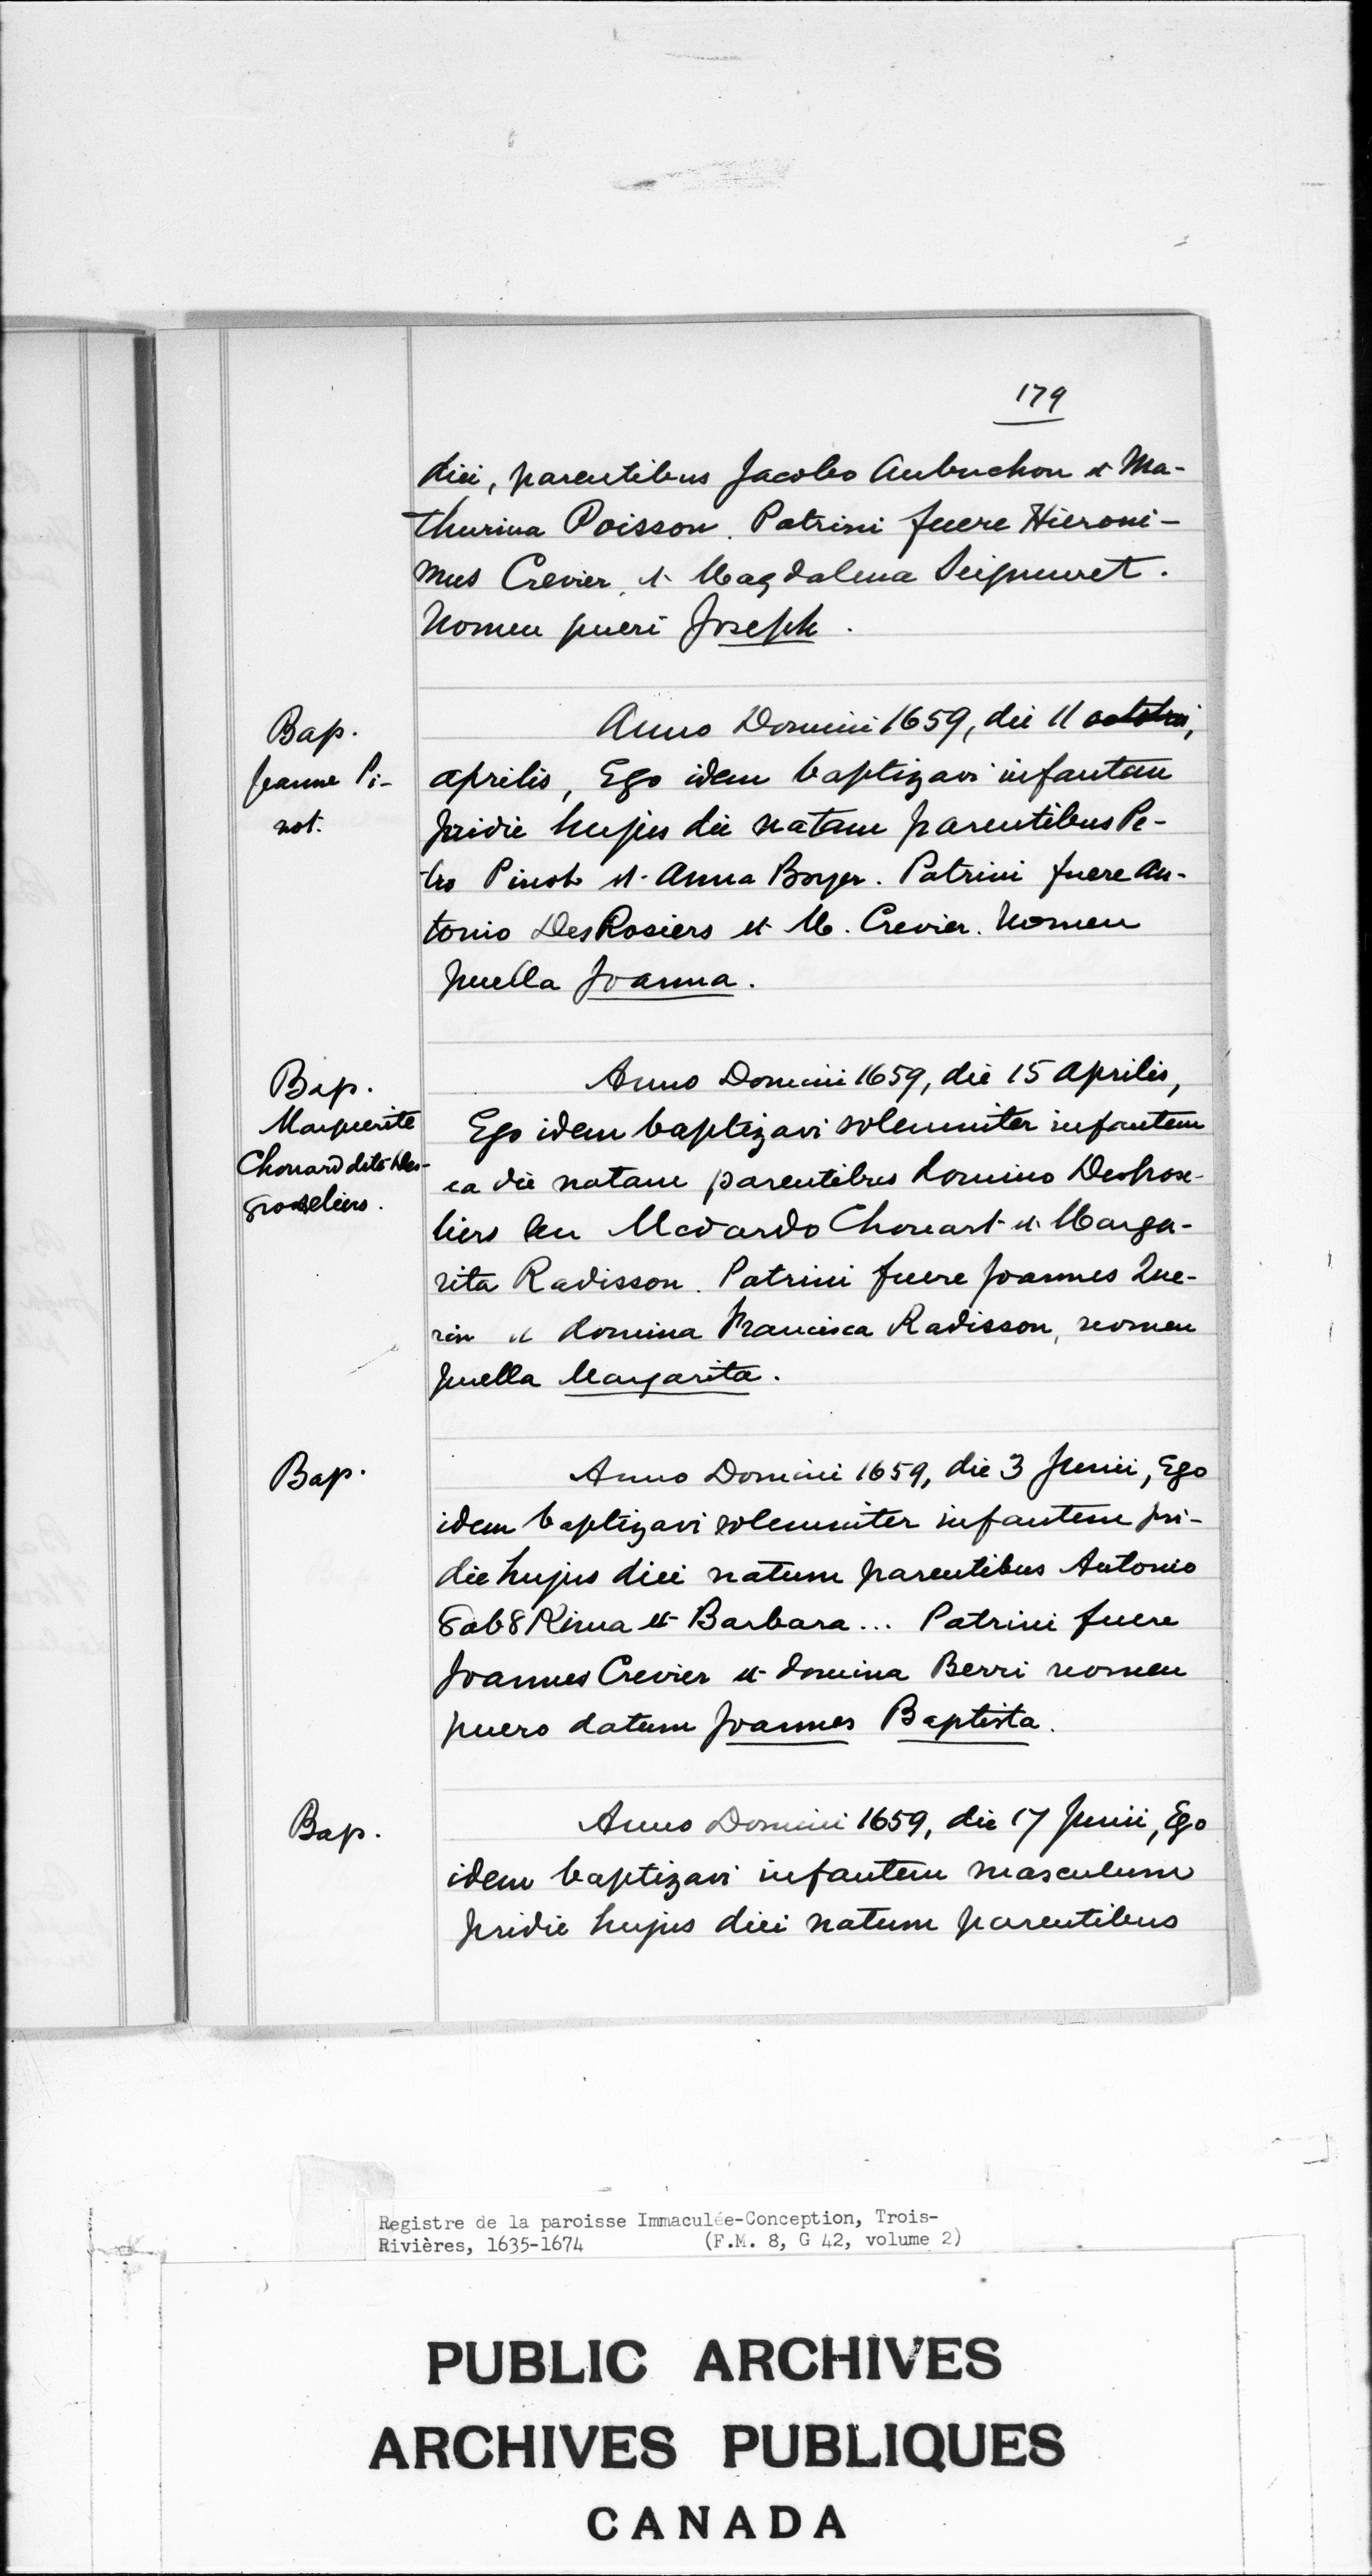 179
diei, parentibus Jacobo Aubuchon et Ma-
thurina Poisson. Patrini fuere Hieroni-
mus Crevier, et Magdalena Seigneuret.
Nomen pueri Joseph.
Bap.
Jeanne Pi-
not.
Anno Domini 1659, die 11 octobri,
aprilis, Ego idem baptizavi infantem
pridie hujus die natam parentibus Pe-
tro Pinot et Anna Boyer. Patrini fuere An-
tonio DesRosiers et M. Crevier. Nomen
puella Joanna.
Bap.
Marguerite
Chouard dite Des-
groseliers.
Anno Domini 1659, die 15 Aprilis,
Ego idem baptizavi solemniter infantem
ea die natam parentibus Domino Desgrose-
liers seu Medardo Chouart et Marga-
rita Radisson. Patrini fuere Joannes Que-
rin et domina Francisca Radisson, nomen
puella Margarita.
Bap.
Anno Domini 1659, die 3 Junii, Ego
idem baptizavi solemniter infantem pri-
die hujus diei natum parentibus Antonio
8ab8Kima et Barbara... Patrini fuere
Joannes Crevier et domina Berri nomen
puero datum Joannes Baptista.
Bap.
Anno Domini 1659, die 17 Junii, Ego
idem baptizavi infantem masculum
pridie hujus diei natum parentibus
Registre de la paroisse Immaculée-Conception, Trois-
Rivières, 1635-1674 (F.M. 8, G 42, volume 2)
PUBLIC ARCHIVES
ARCHIVES PUBLIQUES
CANADA